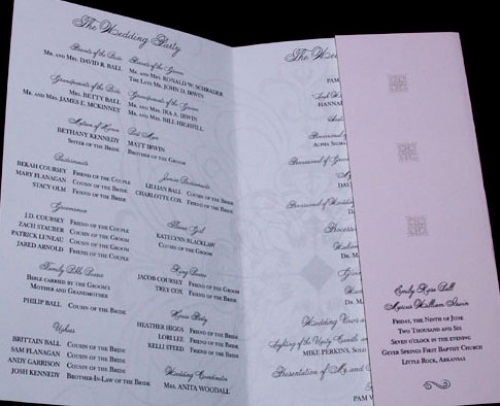 The Wedding Party
Parents of the Bride
Mr. and Mrs. David R. Ball
Parents of the Groom
Mr. and Mrs. Ronald W. Schrader
The Late Mr. John D. Irwin
Grandparents of the Bride
Mrs. Betty Ball
Mr. and Mrs. James E. McKinney
Grandparents of the Groom
Mr. and Mrs. Ira A. Irwin
Mr. and Mrs. Bill Highfill
Matron of Honor
Bethany Kennedy
Sister of the Bride
Best Man
Matt Irwin
Brother of the Groom
Bridesmaids
Bekah Coursey Friend of the Couple
Mary Flanagan Cousin of the Bride
Stacy Olm Friend of the Bride
Junior Bridesmaids
Lillian Ball Cousin of the Bride
Charlotte Cox Cousin of the Bride
Groomsmen
J.D. Coursey Friend of the Couple
Zach Stauber Cousin of the Groom
Patrick Luneau Cousin of the Groom
Jared Arnold Friend of the Couple
Flower Girl
Katelynn Blacklaw
Cousin of the Groom
Family Bible Bearer
Bible carried by the Groom's
Mother and Grandmother
Philip Ball Cousin of the Bride
Ring Bearer
Jacob Coursey Friend of the Couple
Trey Cox Friend of the Bride
Ushers
Brittain Ball Cousin of the Bride
Sam Flanagan Cousin of the Bride
Andy Garrison Cousin of the Bride
Josh Kennedy Brother-in-Law of the Bride
House Party
Heather Higgs Friend of the Bride
Lori Lee Friend of the Bride
Kelli Steed Friend of the Bride
Wedding Coordinator
Mrs. Anita Woodall
The We
Pam
Hannah
Processional of
Processional of
Processio
Wedding
Dr. Ma
Givin
Dr. M
Wedding Vows
Lighting of the Unity
Mike Perkins, Solo
Presentation of Mr. and
Pam W
Emily Rose Ball
Marcus William Irwin
Friday, the Ninth of June
Two Thousand and Six
Seven o'clock in the evening
Geyer Springs First Baptist Church
Little Rock, Arkansas